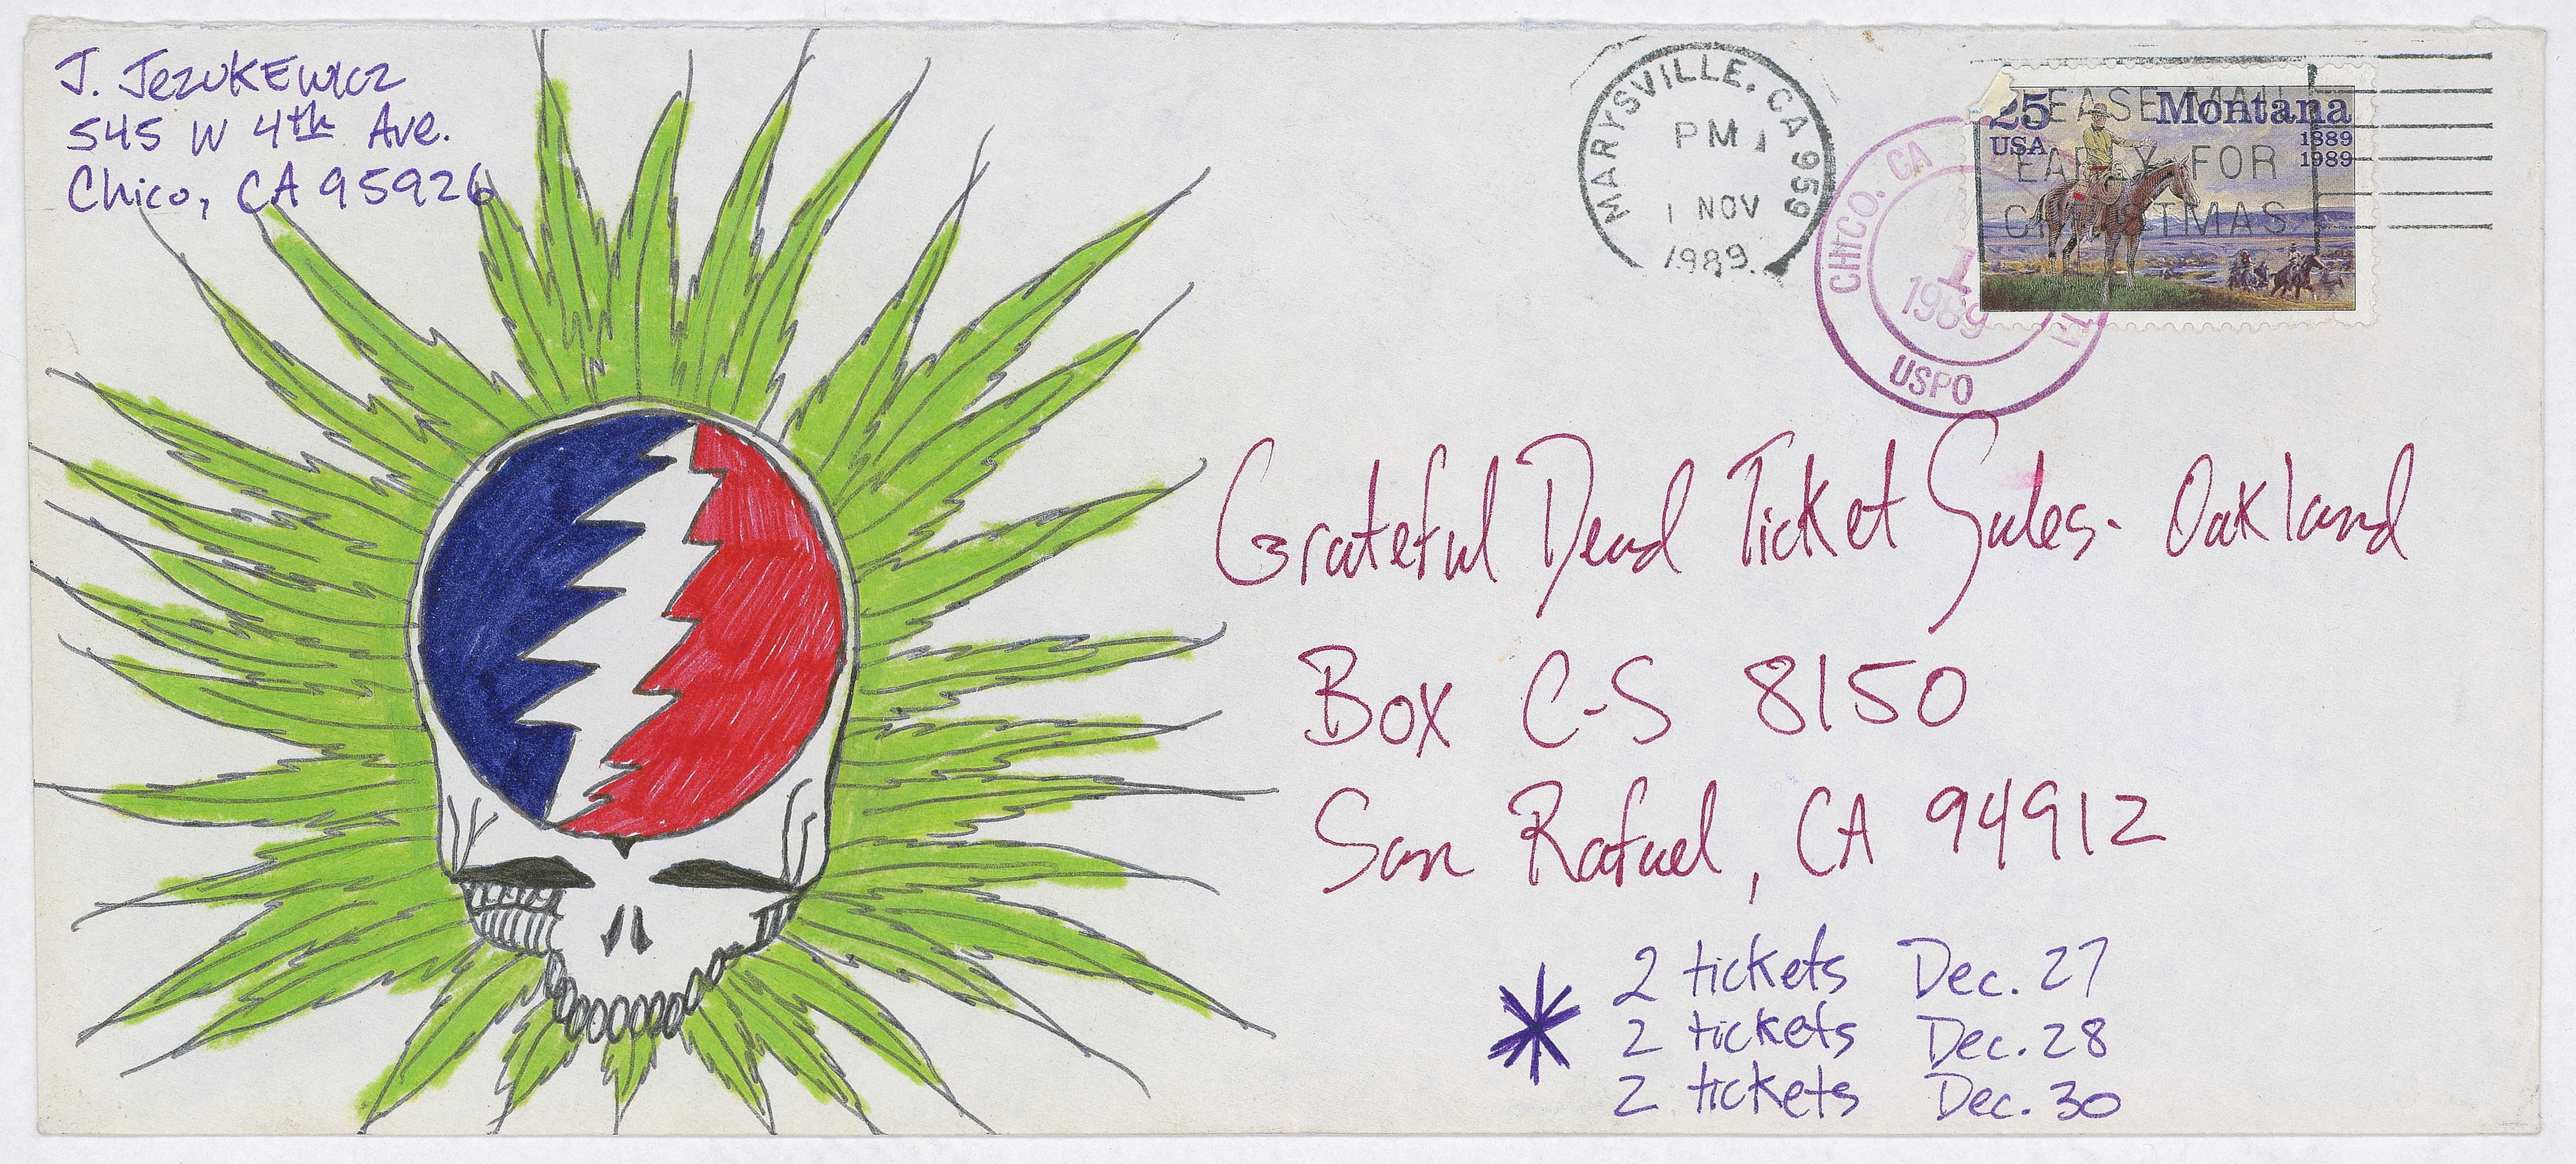 J. Jezukewicz
545 W 4th Ave.
Chico, CA 95926
MARYSVILLE, CA 959
PM
1 NOV
1989
CHICO, CA
1
1989
USPO
25
USA
Montana
1889
1989
EASE MAIL
EARLY FOR
CHRISTMAS
Grateful Dead Ticket Sales - Oakland
Box C-S 8150
San Rafael, CA 94912
* 2 tickets Dec. 27
2 tickets Dec. 28
2 tickets Dec. 30